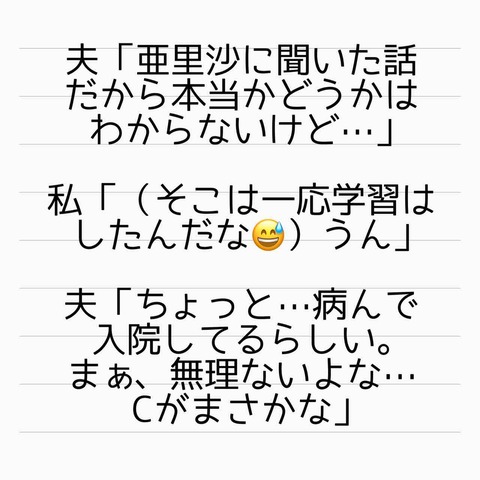 夫「亜里沙に聞いた話
だから本当かどうかは
わからないけど…」
私「（そこは一応学習は
したんだな😅）うん」
夫「ちょっと…病んで
入院してるらしい。
まぁ、無理ないよな…
Cがまさかな」